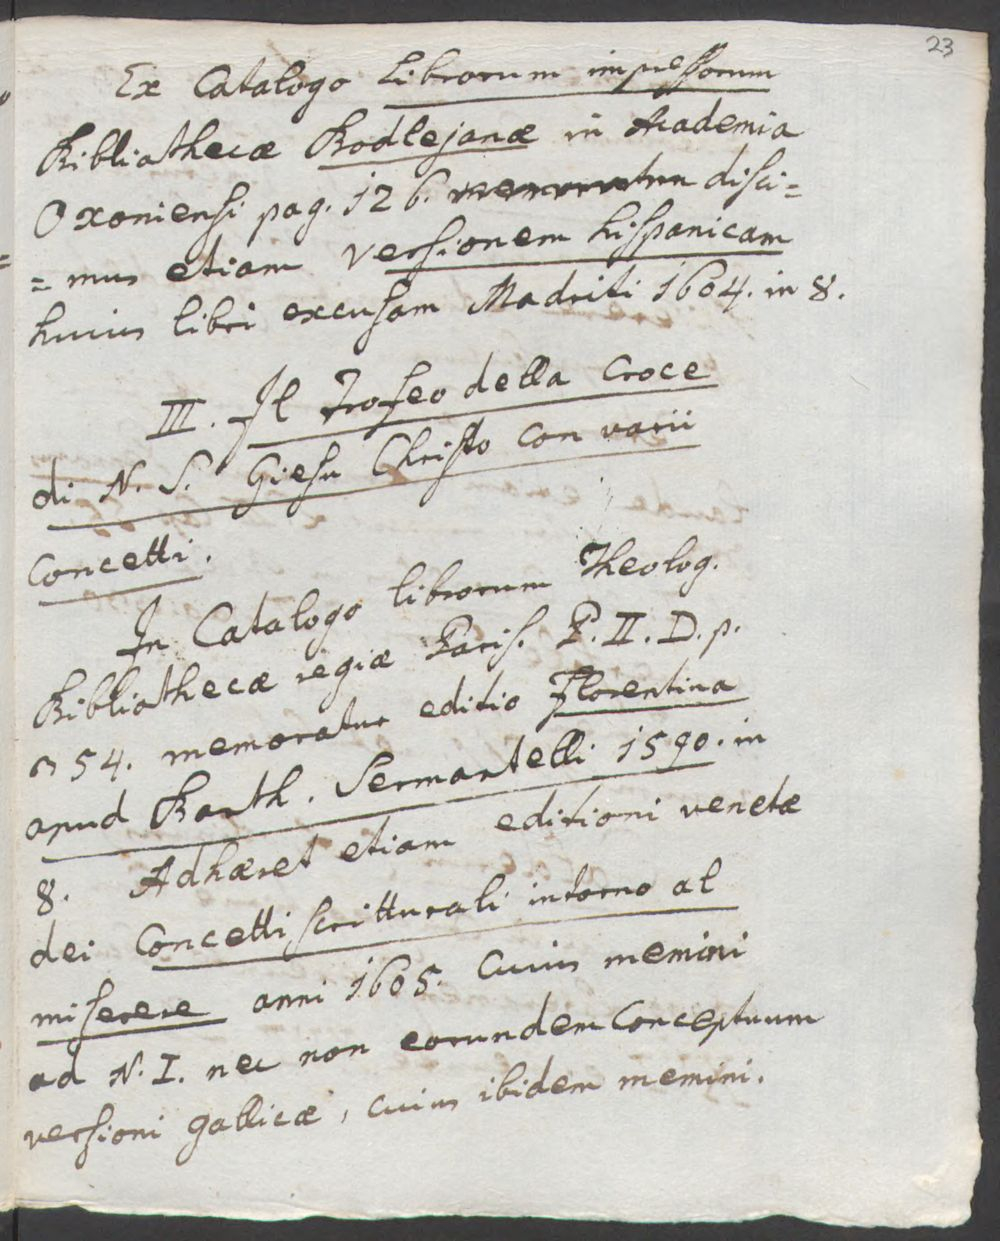 23
Ex Catalogo Librorum impressorum
Bibliothecæ Bodlejanæ in Academia
Oxoniensi pag. 126. disci=
= mus etiam versionem hispanicam
huius libri excusam Madriti 1604. in 8.
III. Il Trofeo della Croce
di N. S. Giesu Christo con varii
Concetti.
In Catalogo librorum Theolog.
Bibliothecæ regiæ Paris. P. II. D. p.
54. memoratur editio Florentina
apud Barth. Sermartelli 1590. in
8. Adhæret etiam editioni venetæ
dei Concetti scritturali intorno al
miserere anni 1605. Cuius memini
ad N. I. nec non eorundem Conceptuum
versioni gallicæ, cuius ibidem memini.